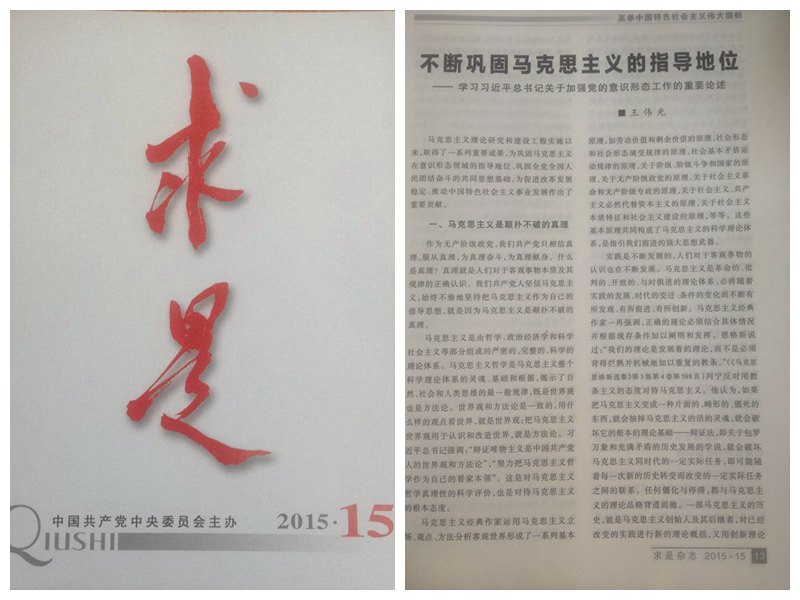 求
是
中国共产党中央委员会主办
2015·15
QIUSHI
高举中国特色社会主义伟大旗帜
不断巩固马克思主义的指导地位
—— 学习习近平总书记关于加强党的意识形态工作的重要论述
■ 王伟光
马克思主义理论研究和建设工程实施以
来,取得了一系列重要成果,为巩固马克思主义
在意识形态领域的指导地位、巩固全党全国人
民团结奋斗的共同思想基础,为促进改革发展
稳定、推动中国特色社会主义事业发展作出了
重要贡献。
一、马克思主义是颠扑不破的真理
作为无产阶级政党,我们共产党只相信真
理,服从真理,为真理奋斗,为真理献身。什么
是真理?真理就是人们对于客观事物本质及其
规律的正确认识。我们共产党人坚信马克思主
义,始终不渝地坚持把马克思主义作为自己的
指导思想,就是因为马克思主义是颠扑不破的
真理。
马克思主义是由哲学、政治经济学和科学
社会主义等部分组成的严密的、完整的、科学的
理论体系。马克思主义哲学是马克思主义整个
科学理论体系的灵魂、基础和根据,揭示了自
然、社会和人类思维的最一般规律,既是世界观
也是方法论。世界观和方法论是一致的,用什
么样的观点看世界,就是世界观;把马克思主义
世界观用于认识和改造世界,就是方法论。习
近平总书记强调:“辩证唯物主义是中国共产党
人的世界观和方法论”,“努力把马克思主义哲
学作为自己的看家本领”。这是对马克思主义
哲学真理性的科学评价,也是对待马克思主义
的根本态度。
马克思主义经典作家运用马克思主义立
场、观点、方法分析客观世界形成了一系列基本
原理,如劳动价值和剩余价值的原理,社会形态
和社会形态演变规律的原理,社会基本矛盾运
动规律的原理,关于阶级、阶级斗争和国家的原
理,关于无产阶级政党的原理,关于社会主义革
命和无产阶级专政的原理,关于社会主义、共产
主义必然代替资本主义的原理,关于社会主义
本质特征和社会主义建设的原理,等等。这些
基本原理共同构成了马克思主义的科学理论体
系,是指引我们前进的强大思想武器。
实践是不断发展的,人们对于客观事物的
认识也在不断发展。马克思主义是革命的、批
判的、开放的、与时俱进的理论体系,必将随着
实践的发展、时代的变迁、条件的变化而不断有
所发现、有所前进、有所创新。马克思主义经典
作家一再强调,正确的理论必须结合具体情况
并根据现存条件加以阐明和发挥。恩格斯说
过:“我们的理论是发展着的理论,而不是必须
背得烂熟并机械地加以重复的教条。”(《马克思
恩格斯选集》第3版第4卷第588页)列宁反对用教
条主义的态度对待马克思主义。他认为,如果
把马克思主义变成一种片面的、畸形的、僵死的
东西,就会抽掉马克思主义的活的灵魂,就会破
坏它的根本的理论基础——辩证法、即关于包罗
万象和充满矛盾的历史发展的学说,就会破坏
马克思主义同时代的一定实际任务,即可能随
着每一次新的历史转变而改变的一定实际任务
之间的联系。任何僵化与停滞,都与马克思主
义的理论品格背道而驰。一部马克思主义的历
史,就是马克思主义创始人及其后继者,对已经
改变的实践进行新的理论概括,又用创新理论
求是杂志 2015·15 13